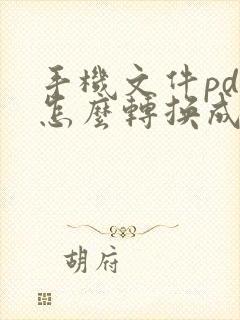 手機文件pd
怎麼轉換成
胡府